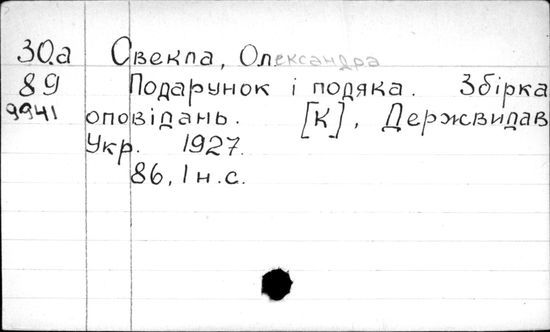 30.а Свекла, Олександра
89 Подарунок і подяка. Збірка
9941 оповідань. [К], Держвидав
Укр. 1927.
86, 1 н. с.